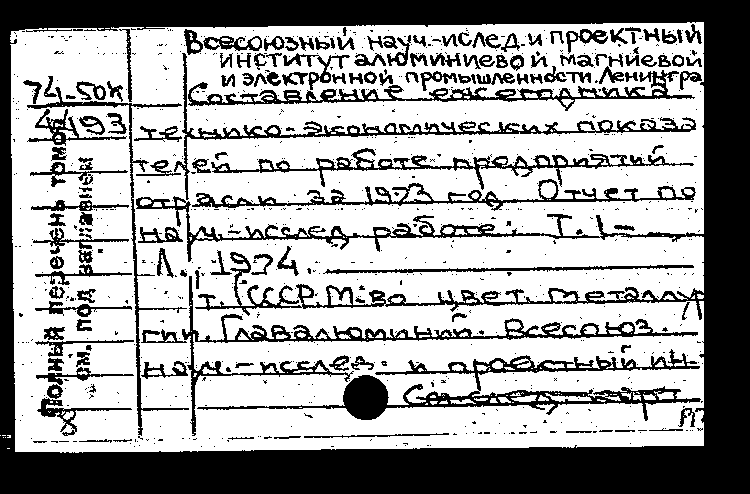 Всесоюзный науч.-ислед. и проектный
институт алюминиевой, магниевой
и электронной промышленности. Ленингра
74-50к
4493
Составление ежегодника
технико-экономических показа
телей по работе предприятий
отрасли за 1973 год. Отчет по
науч.-исслед. работе: Т. 1-
Л., 1974.
т. (СССР. М-во цвет. металлур
гии. Главалюминий. Всесоюз.
науч.-исслед. и проектный ин-
См. след. карт
Полный перечень томов
см. под заглавием